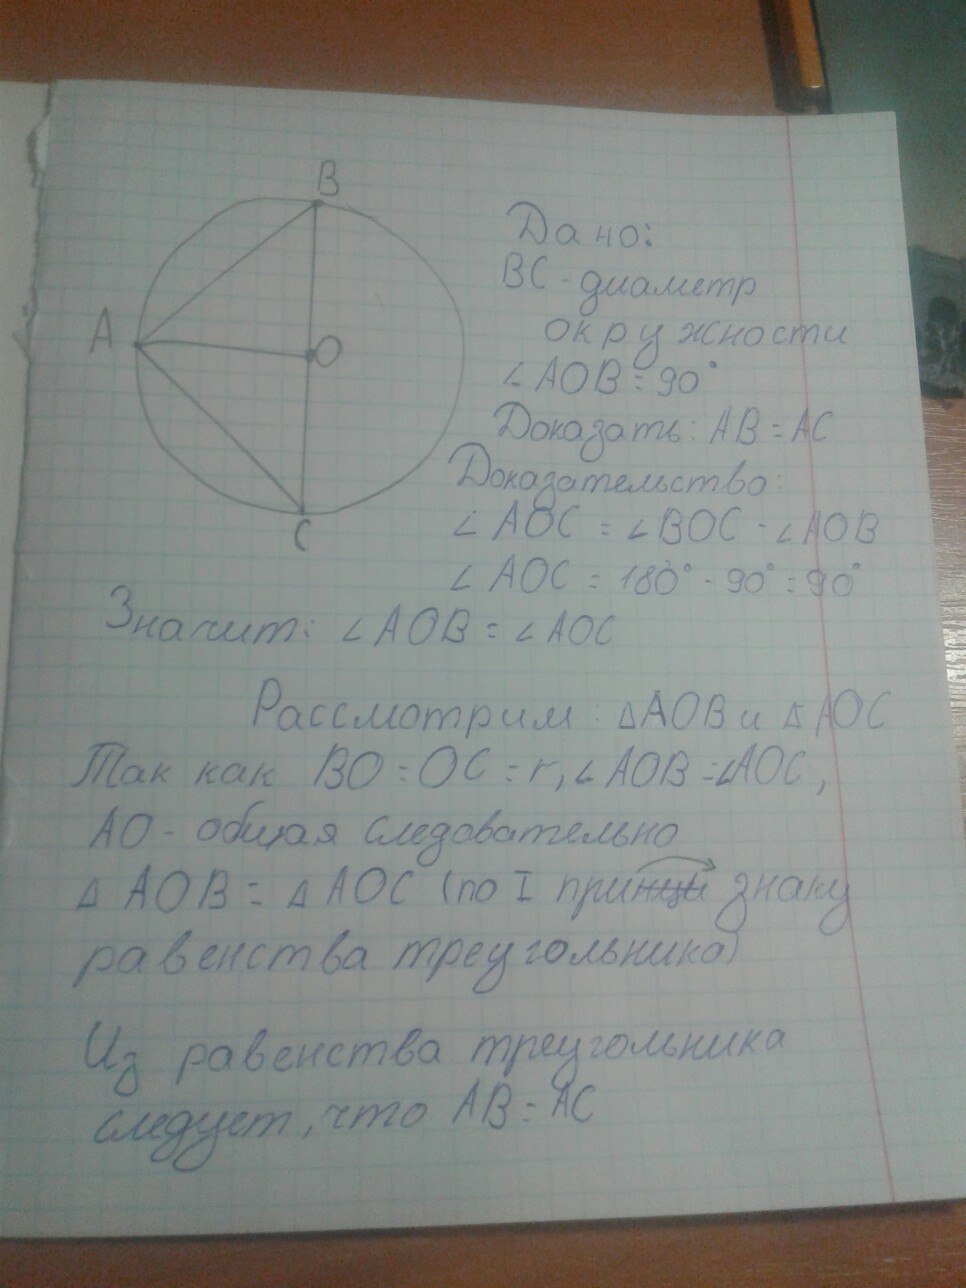 B
A
O
C
Дано:
BC - диаметр
окружности
∠AOB = 90°
Доказать: AB = AC
Доказательство:
∠AOC = ∠BOC - ∠AOB
∠AOC = 180° - 90° = 90°
Значит: ∠AOB = ∠AOC
Рассмотрим: △AOB и △AOC
Так как BO = OC = r, ∠AOB = ∠AOC,
AO - общая следовательно
△ AOB = △ AOC (по I признаку
равенства треугольника)
Из равенства треугольника
следует, что AB = AC